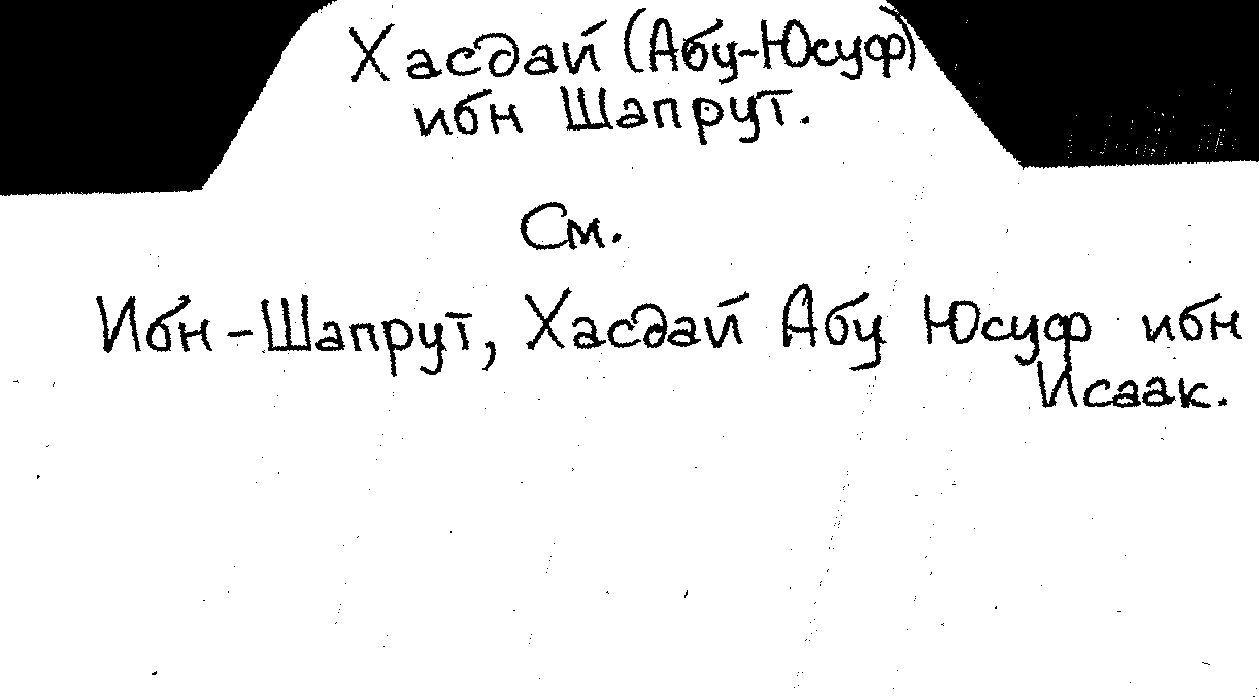 Хасдай (Абу-Юсуф)
ибн Шапрут.
См.
Ибн-Шапрут, Хасдай Абу Юсуф ибн
Исаак.